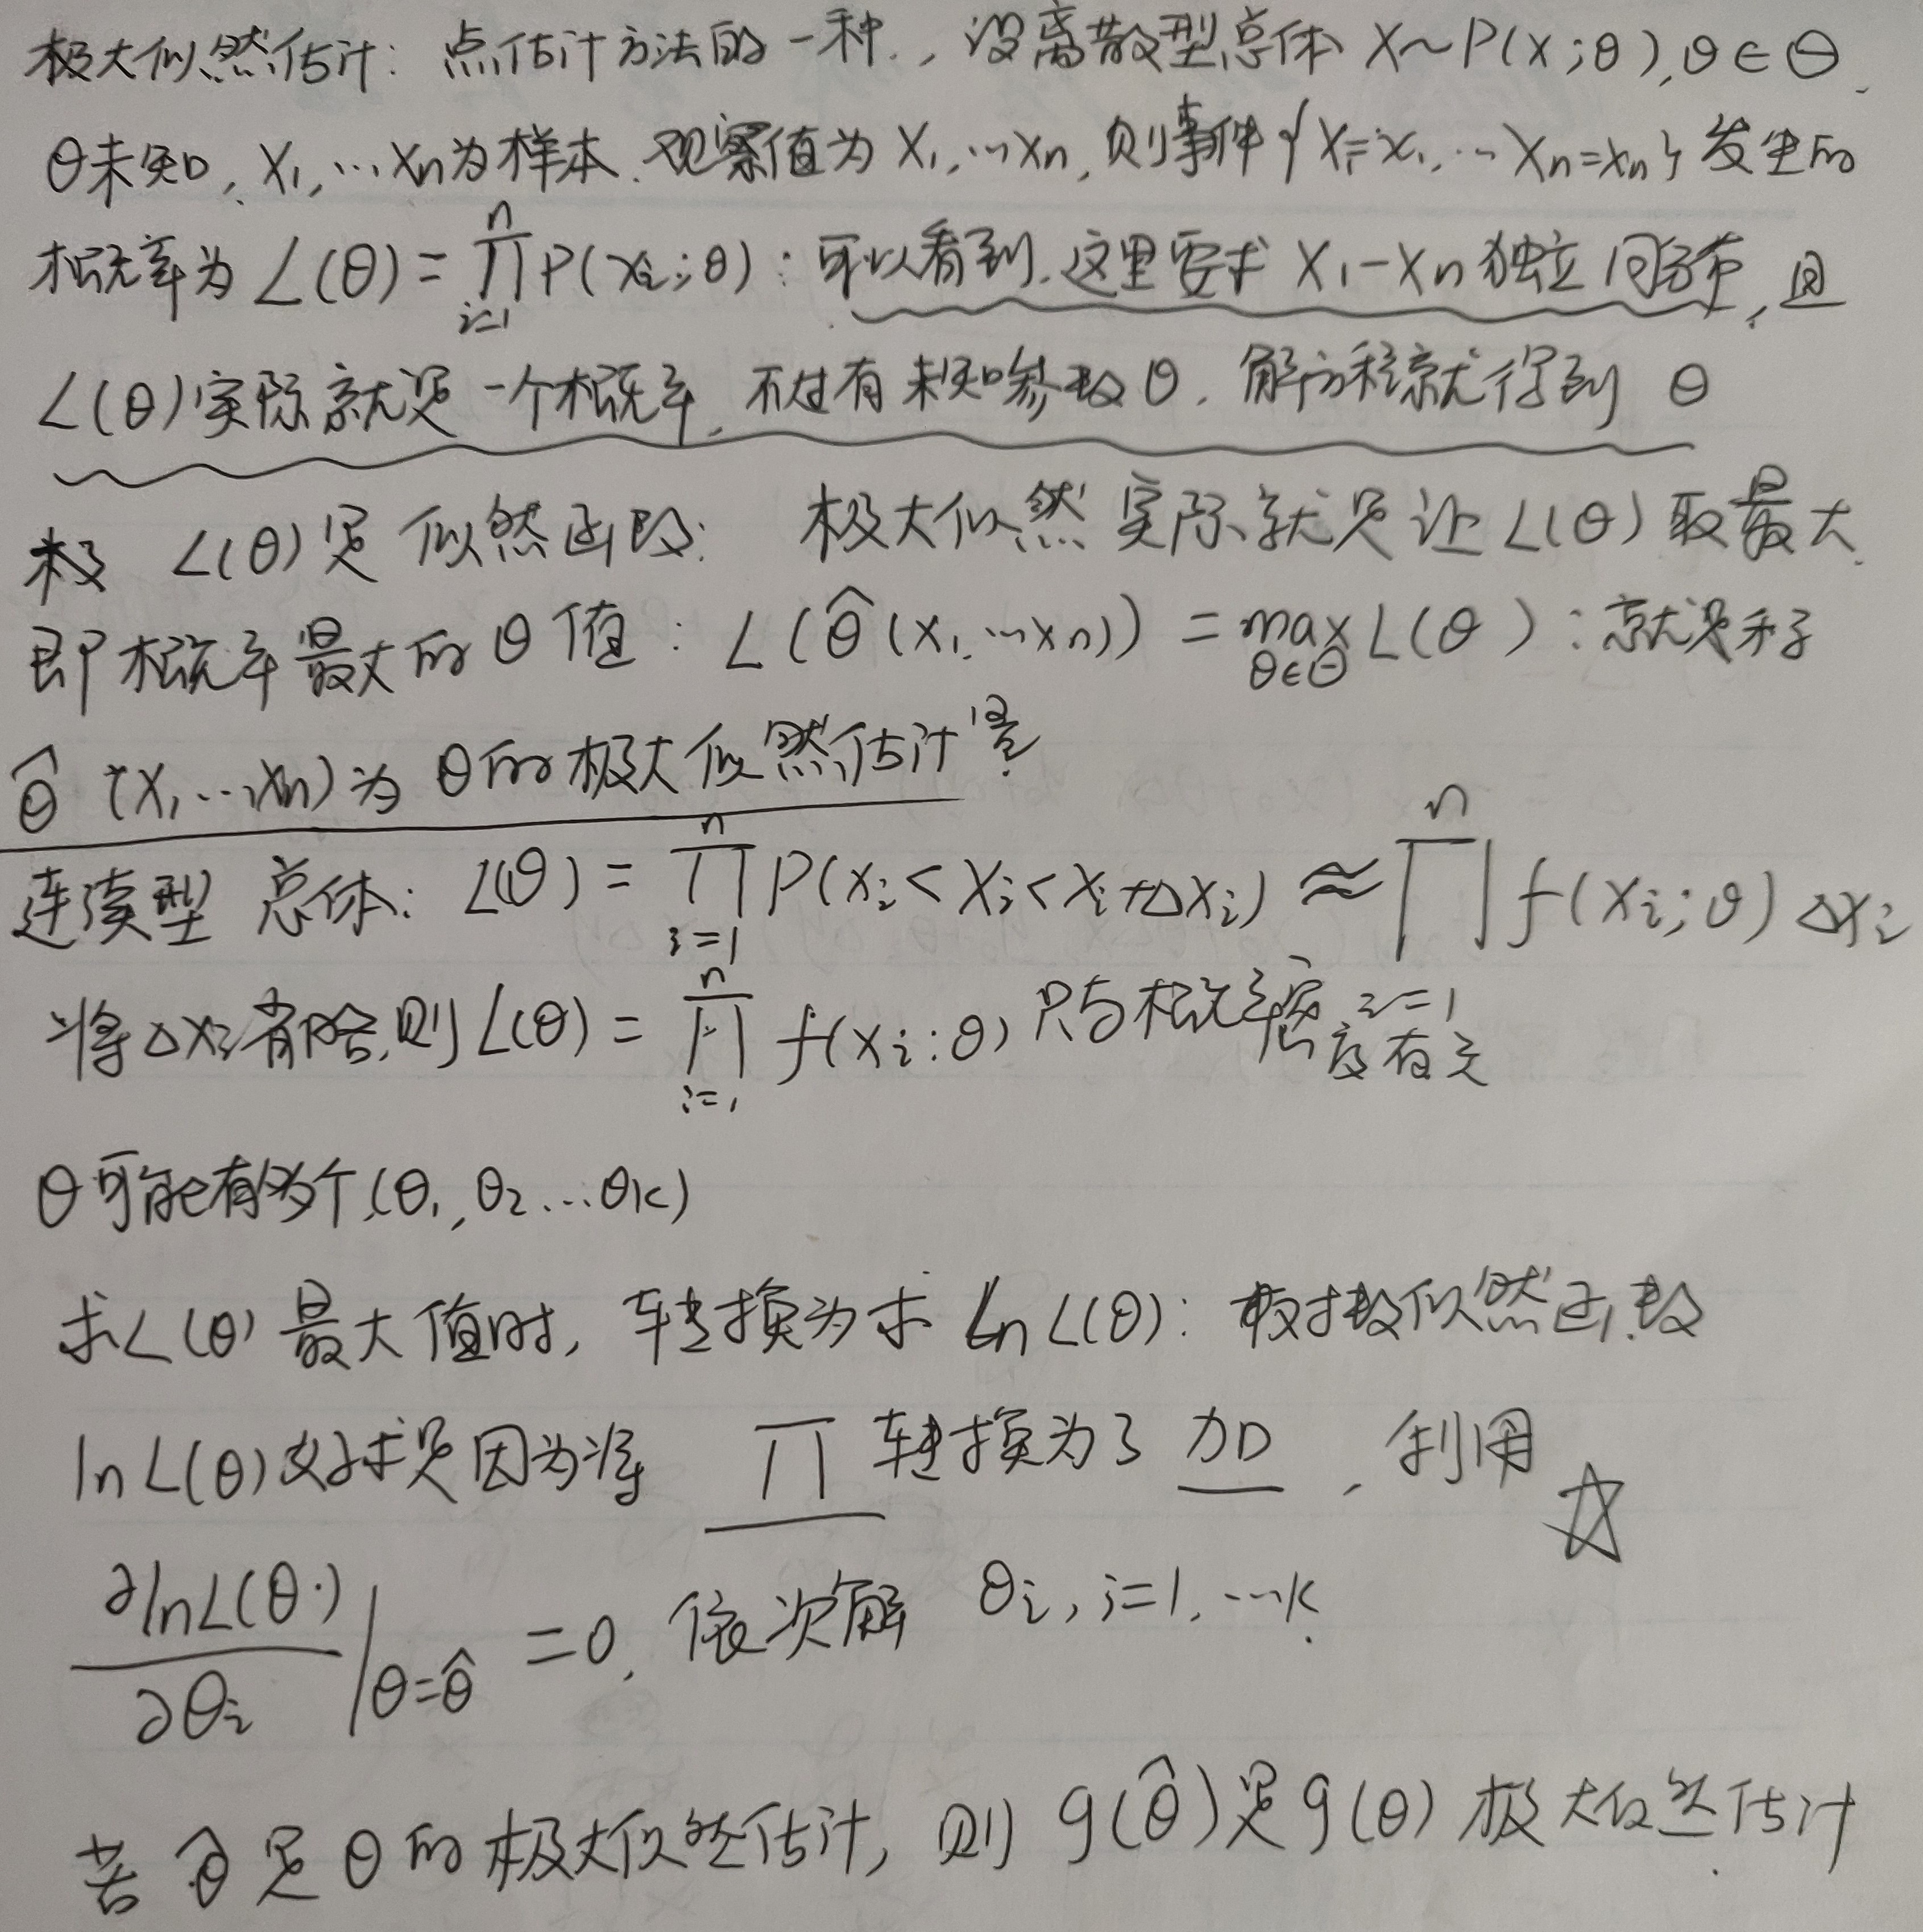 极大似然估计: 点估计方法的一种., 设离散型总体 X~P(x;θ),θ∈Θ.
θ未知, X₁,…Xn为样本. 观察值为 X₁,…xn, 则事件{X₁=x₁,…Xn=xn}发生的
概率为 L(θ)=∏ⁿᵢ₌₁P(xᵢ;θ): 可以看到.这里要求 X₁-Xn独立同分布, 且
L(θ)实际就是一个概率, 不过有未知参数θ. 解方程就得到 θ
极 L(θ)是 似然函数: 极大似然 实际就是让 L(θ)取最大.
即概率最大的θ值: L(θ̂(x₁.…xn)) = max L(θ): 就是称
θ∈Θ
θ̂ (X₁…,Xn)为 θ的极大似然估计量
连续型 总体: L(θ) = ∏ⁿᵢ₌₁ P(xᵢ<Xᵢ<xᵢ+Δxᵢ) ≈ ∏ⁿᵢ₌₁ f(xᵢ;θ)Δxᵢ
将Δxᵢ省略,则L(θ) = ∏ⁿᵢ₌₁ f(xᵢ:θ) 只与概率密度有关
θ可能有多个(θ₁,θ₂…θk)
求L(θ)最大值时, 转换为求 Ln L(θ): 取对数似然函数
ln L(θ)好求是因为将 ∏ 转换为了 加, 利用 ☆
∂lnL(θ·)/∂θᵢ |θ=θ̂ =0, 依次解 θᵢ, i=1.…k.
若 θ̂ 是 θ 的极大似然估计, 则 g(θ̂)是g(θ) 极大似然估计